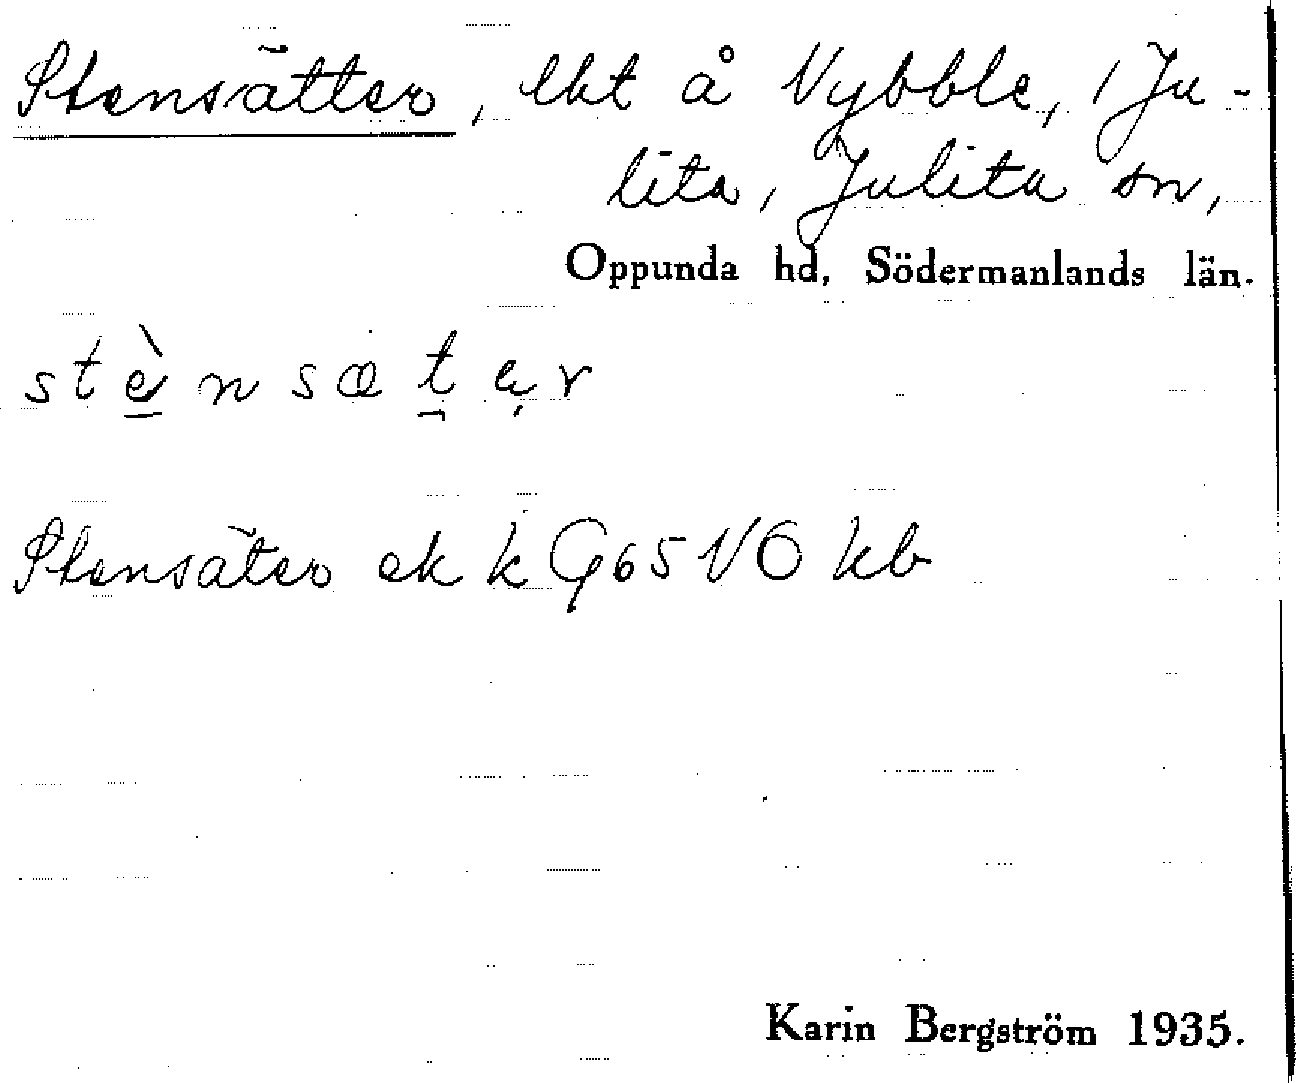 Stensätter, lht å Vybble, 1 Ju-
lita, Julita sn,
Oppunda hd, Södermanlands län.
stè̠nsætər
Stensäter ek k G65 VÖ kb
Karin Bergström 1935.